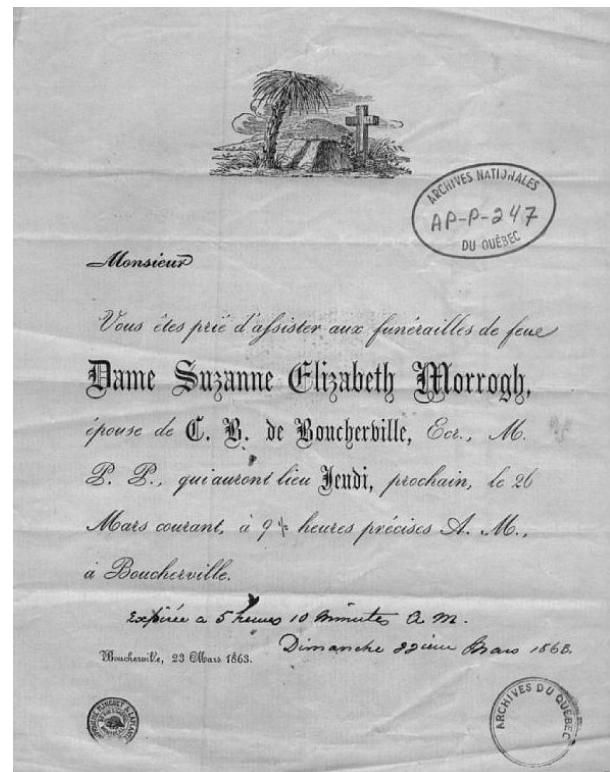 ARCHIVES NATIONALES
AP-P-247
DU QUÉBEC
Monsieur
Vous êtes prié d'assister aux funérailles de feue
Dame Suzanne Elizabeth Morrogh,
épouse de C. B. de Boucherville, Ecr., M.
P. P., qui auront lieu Jeudi, prochain, le 26
Mars courant, à 9 ½ heures précises A. M.,
à Boucherville.
Expirée a 5 heures 10 Minutes A M.
Dimanche 22ieme Mars 1863.
Boucherville, 23 Mars 1863.
ARCHIVES DU QUÉBEC